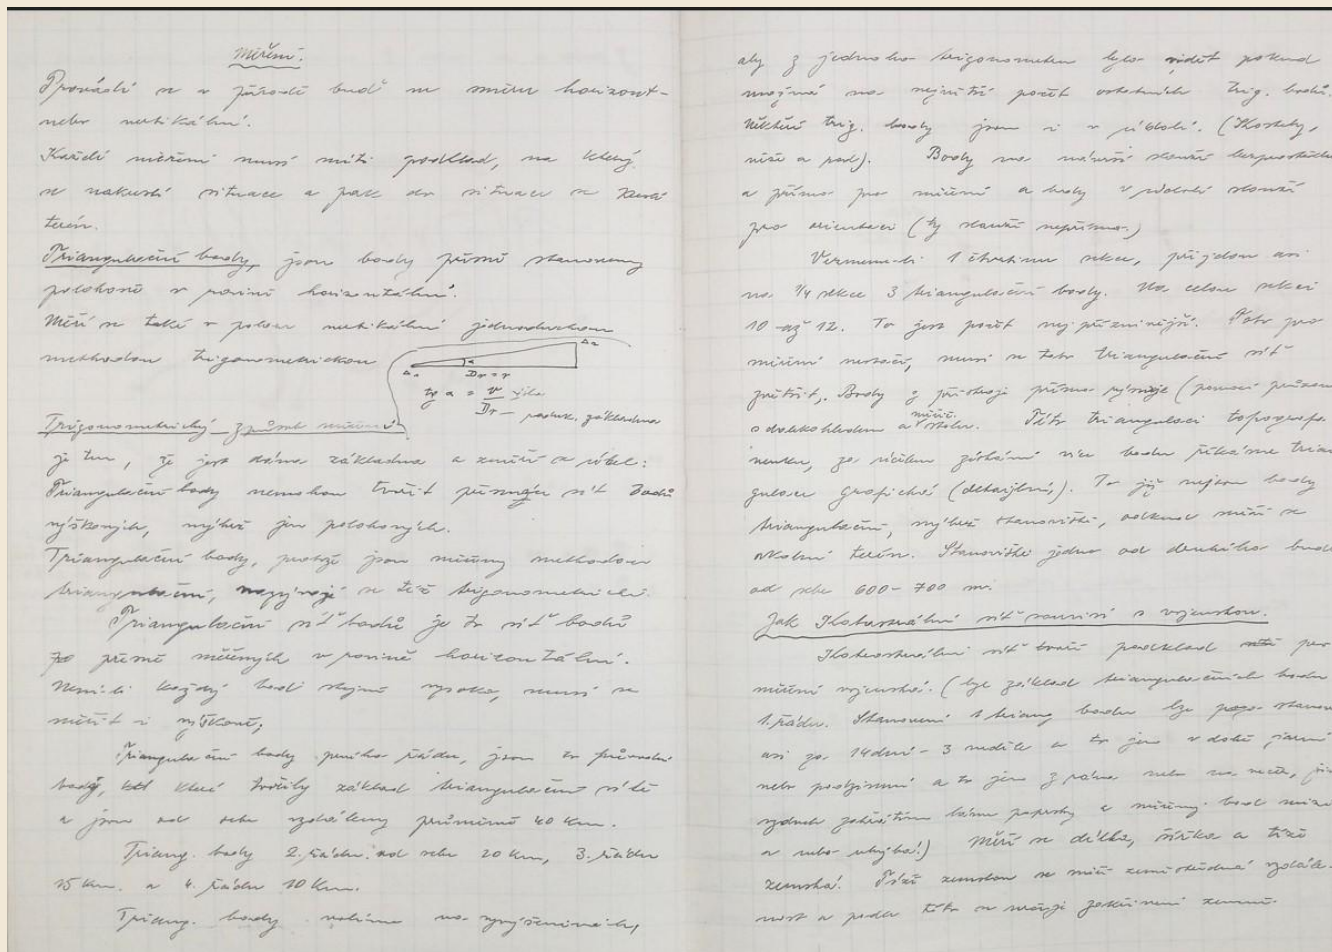 Měření.
Provádí se v přírodě buď ve směru horizont-
nebo vertikální.
Každé měření musí míti podklad, na který
se nakreslí situace a pak do situace se kreslí
terén.
Triangulační body, jsou body přesně stanoveny
polohově v rovině horizontální.
Měří se také v poloze vertikální jednoduchou
methodou trigonometrickou
Dr = r
tg α = v výška
Dr – reduk. základna
Trigonometrický způsob měření
je ten, že jest dána základna a změří se úhel:
Triangulační body nemohou tvořit přesnou síť bodů
výškových, nýbrž jen polohových.
Triangulační body, protože jsou měřeny methodou
triangulační, se též trigonometrické.
Triangulační síť bodů je to síť bodů
po přesně měřených v rovině horizontální.
Není-li každý bod stejně vysoko, musí se
měřit i výškově;
Triangulační body prvního řádu, jsou to původní
body, které tvořily základ triangulační sítě
a jsou od sebe vzdáleny průměrně 40 km.
Triang. body 2. řádu. od sebe 20 km, 3. řádu
15 km. a 4. řádu 10 km.
Triang. body volíme na vyvýšeninách,
aby z jednoho trigonometru bylo vidět pokud
možná na největší počet ostatních trig. bodů.
Některé trig. body jsou i v údolí. (Kostely,
věže a pod). Body na návrší slouží bezprostředně
a přímo pro měření a body v údolí slouží
pro orientaci (ty slouží nepřímo.)
Vezmeme-li 1 čtvrtinu sekce, přijdou asi
na 1/4 sekce 3 triangulační body. Na celou sekci
10 až 12. To jest počet nejpříznivější. Toto pro
měření nestačí, musí se tato triangulační síť
Body z přístroje přímo (pomocí
s dalekohledem a měřič. stolu. Této triangulaci topografa
za účelem získání více bodů říkáme trian
gulace grafická (detajlní). To již nejsou body
triangulační, nýbrž stanoviště, odkud měří se
okolní terén. Stanoviště jedno od druhého bude
od sebe 600 – 700 m.
Jak Katastrální síť souvisí s vojenskou.
Katastrální síť tvoří podklad pro
měření vojenská. (byl základ triangulačních bodů
1. řádu. Stanovení 1 triang bodu lze stanov
asi za 14 dní – 3 neděle a to jen v době jarní
nebo podzimní a to jen z rána nebo na večer,
vzduch paprsky a měřený bod
a nebo uhýbá.) Měří se délka, šířka a tíže
zemská. Tíží zemskou se měří vzdále-
nost a podle této se určuje zakřivení země.